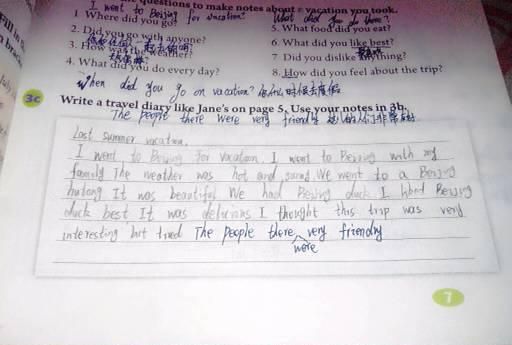 questions to make notes about a vacation you took.
I went to Beijing for vacation. What did you do there?
1 Where did you go? 5. What food did you eat?
2. Did you go with anyone? 6. What did you like best?
3. How was the weather? 7 Did you dislike anything?
4. What did you do every day? 8. How did you feel about the trip?
When did you go on vacation? 你什么时候去度假
3c Write a travel diary like Jane's on page 5. Use your notes in 3b.
The people there were very friendly 那儿的人们非常友好
Last summer vacation.
I went to Beijing for vacation. I went to Beijing with my
family The weather was hot and sunny. We went to a Beijing
hutong It was beautiful We had Beijing duck I liked Beijing
duck best It was delicious I thought this trip was very
interesting but tired The people there very friendly
were
7